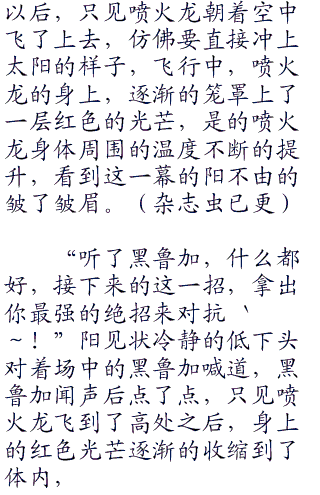 以后，只见喷火龙朝着空中
飞了上去，仿佛要直接冲上
太阳的样子，飞行中，喷火
龙的身上，逐渐的笼罩上了
一层红色的光芒，是的喷火
龙身体周围的温度不断的提
升，看到这一幕的阳不由的
皱了皱眉。（杂志虫已更）
“听了黑鲁加，什么都
好，接下来的这一招，拿出
你最强的绝招来对抗｀
～！”阳见状冷静的低下头
对着场中的黑鲁加喊道，黑
鲁加闻声后点了点，只见喷
火龙飞到了高处之后，身上
的红色光芒逐渐的收缩到了
体内，